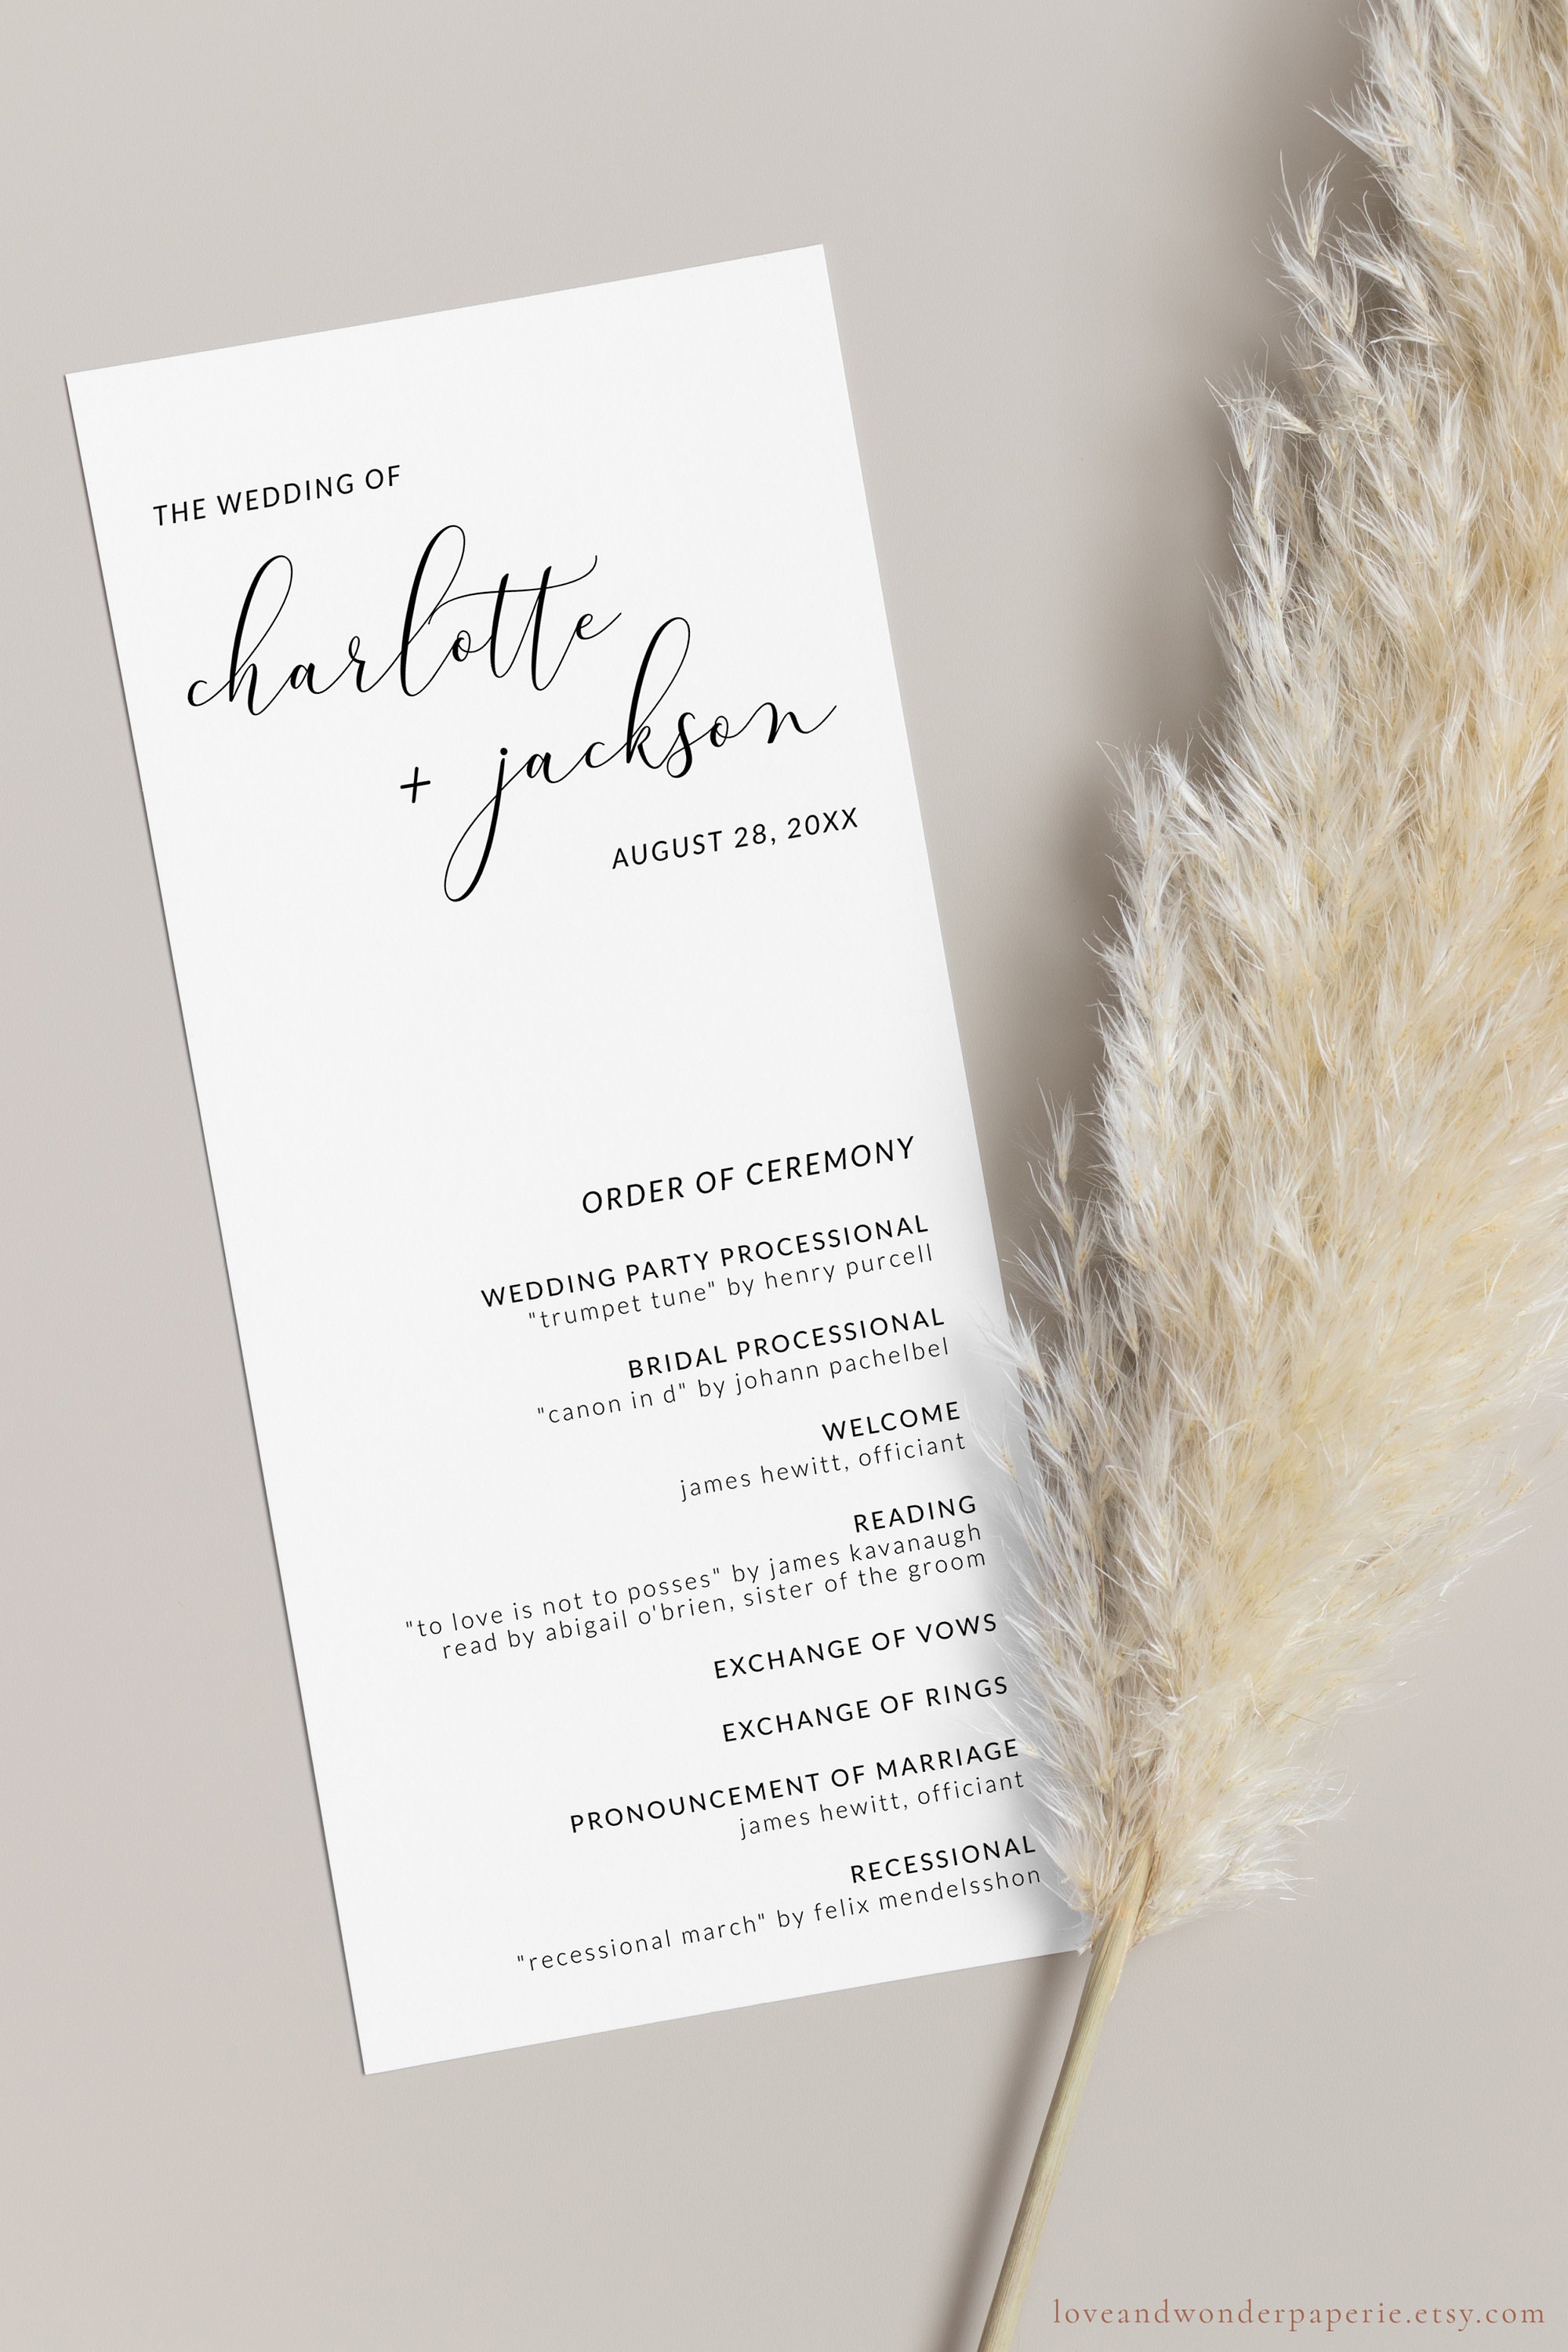 THE WEDDING OF
charlotte
+ jackson
AUGUST 28, 20XX
ORDER OF CEREMONY
WEDDING PARTY PROCESSIONAL
"trumpet tune" by henry purcell
BRIDAL PROCESSIONAL
"canon in d" by johann pachelbel
WELCOME
james hewitt, officiant
READING
"to love is not to posses" by james kavanaugh
read by abigail o'brien, sister of the groom
EXCHANGE OF VOWS
EXCHANGE OF RINGS
PRONOUNCEMENT OF MARRIAGE
james hewitt, officiant
RECESSIONAL
"recessional march" by felix mendelsshon
loveandwonderpaperie.etsy.com